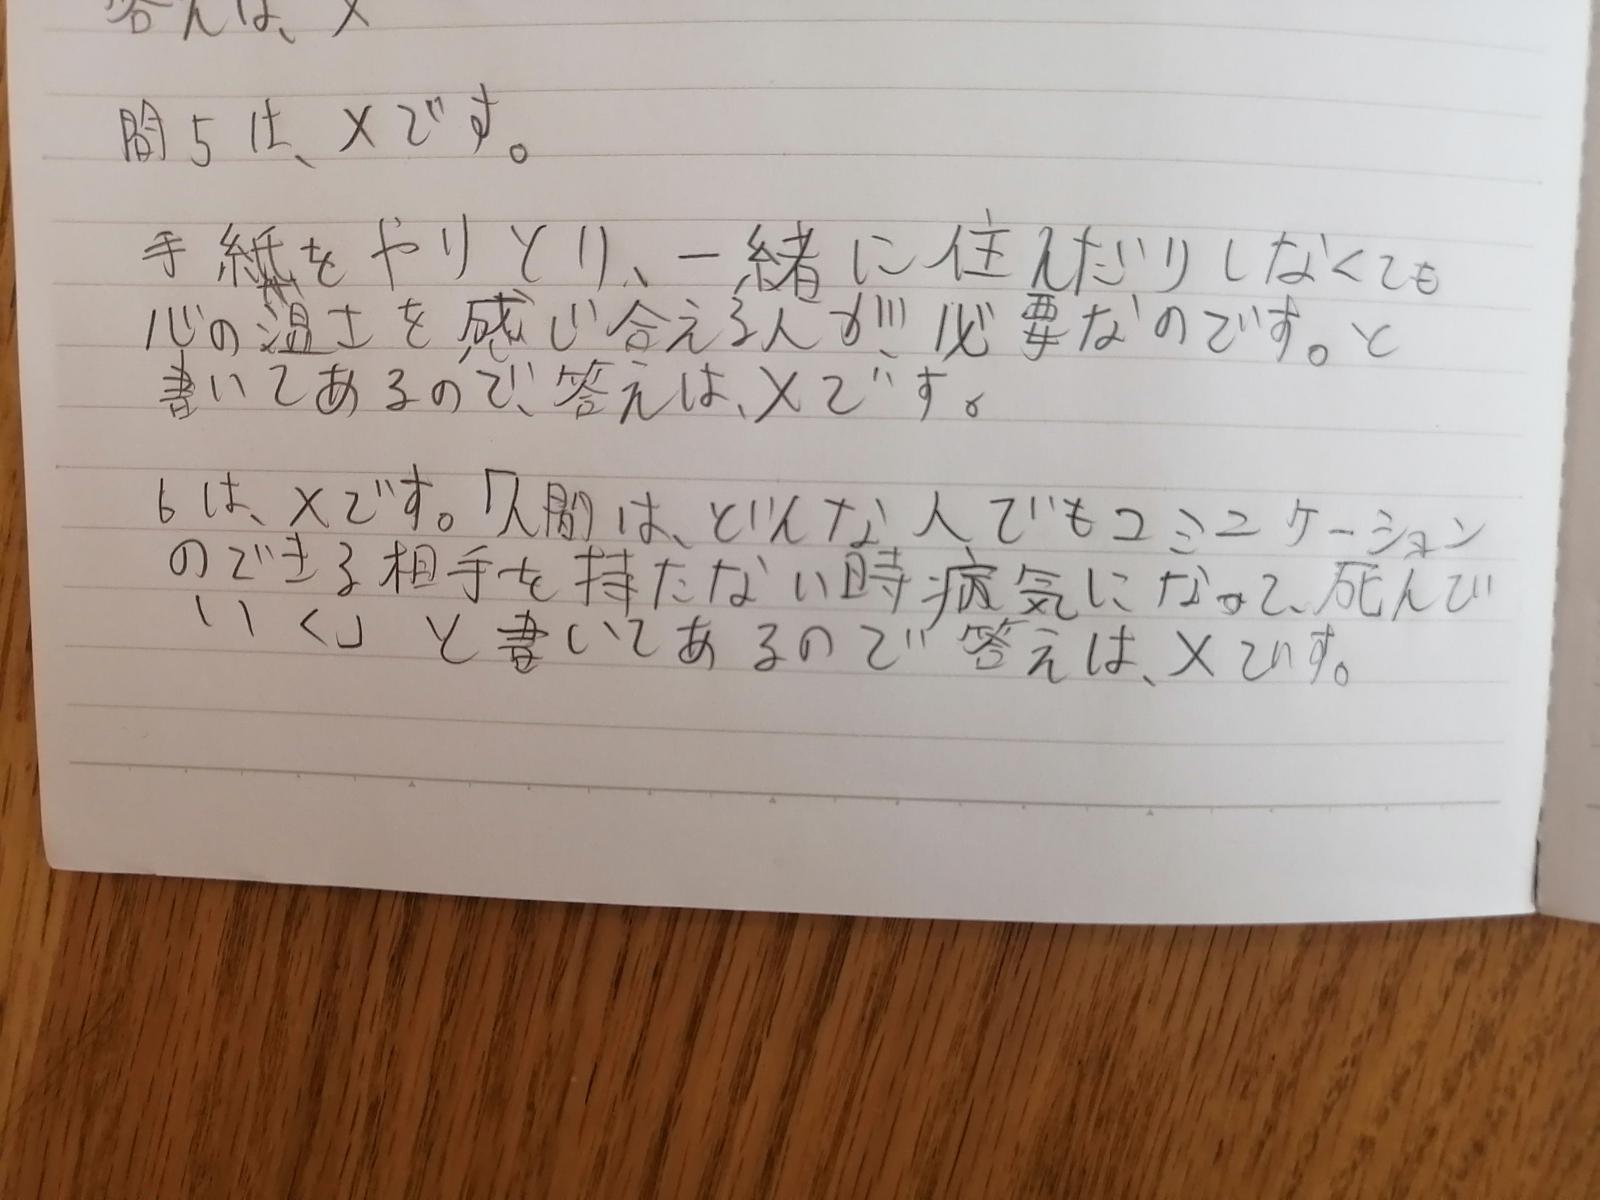 答えは、×
問5は、×です。
手紙をやりとり、一緒に住んだりしなくても
心の温士を感じ合える人が、必要なのです。と
書いてあるので、答えは、×です。
6は、×です。「人間は、どんな人でもコミュニケーション
のできる相手を持たない時病気になって、死んで
いく」と書いてあるので答えは、×です。